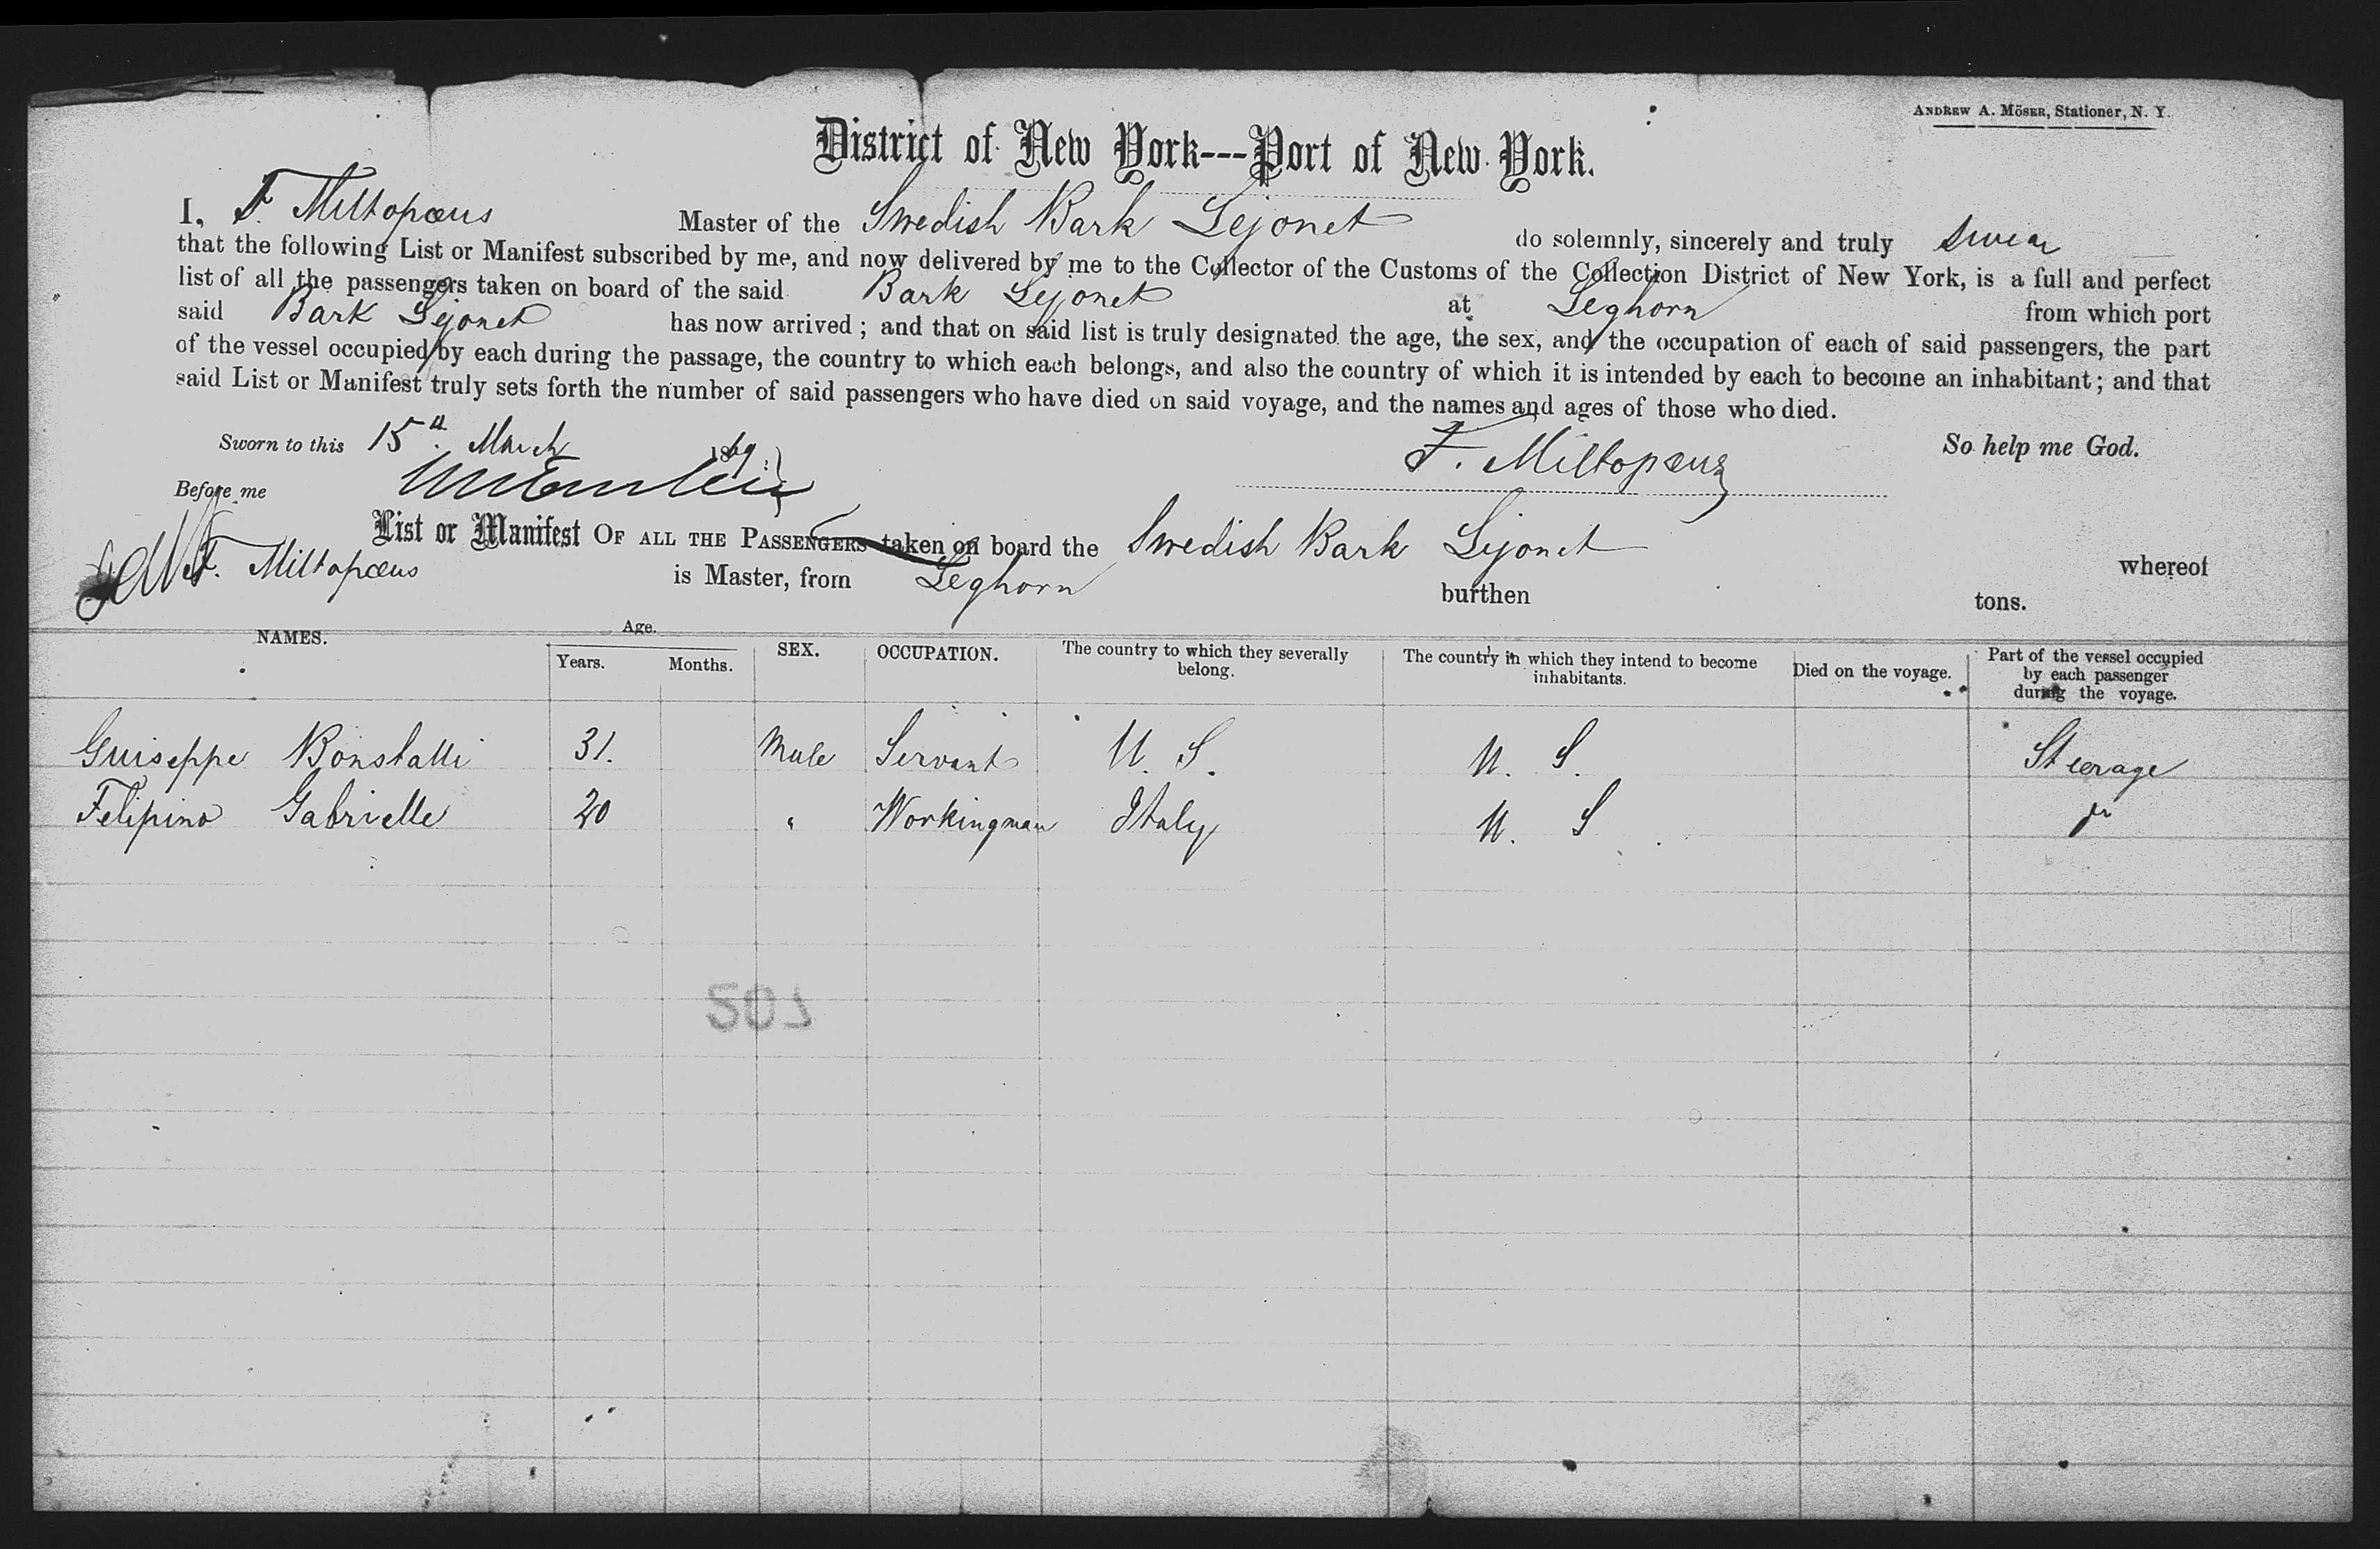 ANDREW A. MÖSER, Stationer, N. Y.
District of New York---Port of New York.
I, F. Miltopæus Master of the Swedish Bark Lejonet do solemnly, sincerely and truly swear
that the following List or Manifest subscribed by me, and now delivered by me to the Collector of the Customs of the Collection District of New York, is a full and perfect
list of all the passengers taken on board of the said Bark Lejonet at Leghorn from which port
said Bark Lejonet has now arrived; and that on said list is truly designated the age, the sex, and the occupation of each of said passengers, the part
of the vessel occupied by each during the passage, the country to which each belongs, and also the country of which it is intended by each to become an inhabitant; and that
said List or Manifest truly sets forth the number of said passengers who have died on said voyage, and the names and ages of those who died.
Sworn to this 15th March 1869. So help me God.
Before me F. Miltopæus
List or Manifest OF ALL THE PASSENGERS taken on board the Swedish Bark Lejonet whereof
F. Miltopæus is Master, from Leghorn burthen tons.
NAMES. Age. Years. Months. SEX. OCCUPATION. The country to which they severally belong. The country in which they intend to become inhabitants. Died on the voyage. Part of the vessel occupied by each passenger during the voyage.
Guiseppe Bonstalli 31. Male Servant U. S. U. S. Steerage
Felipino Gabrielle 20 " Workingman Italy U. S.
501